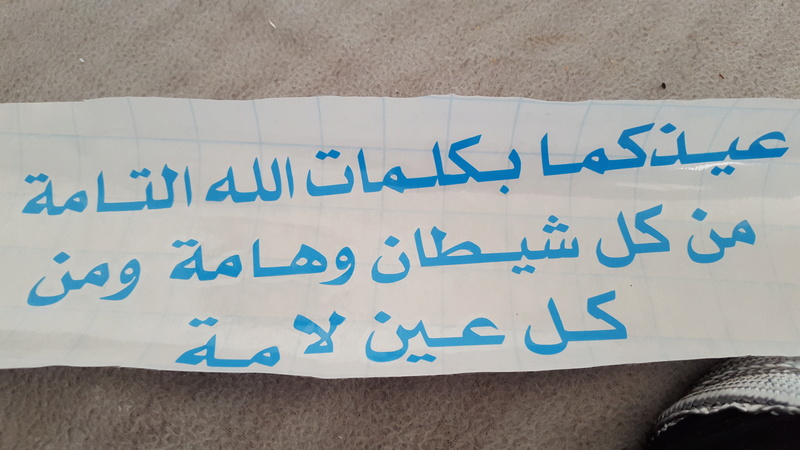 عيذكما بكلمات الله التامة
من كل شيطان وهامة ومن
كل عين لامة